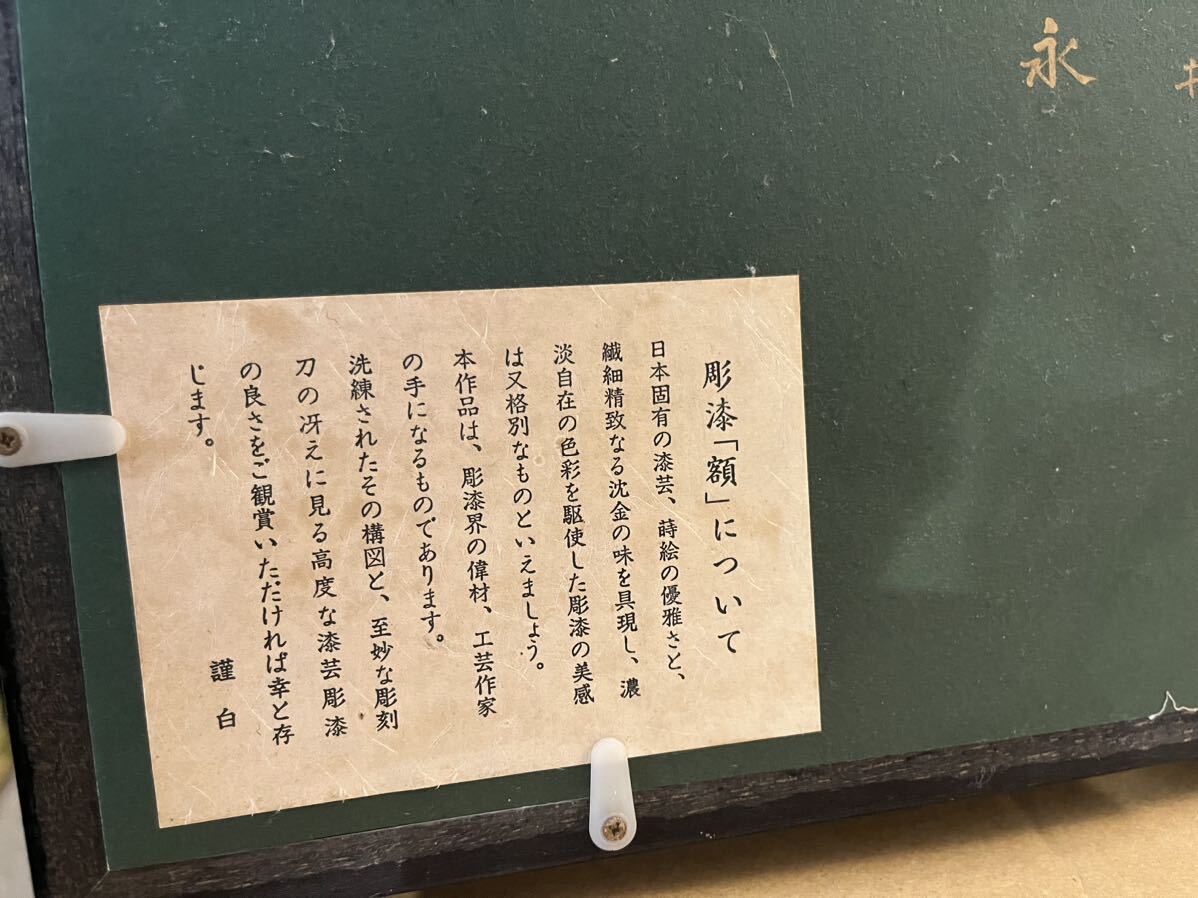 永
彫漆「額」について
日本固有の漆芸、蒔絵の優雅さと、
繊細精致なる沈金の味を具現し、濃
淡自在の色彩を駆使した彫漆の美感
は又格別なものといえましょう。
本作品は、彫漆界の偉材、工芸作家
の手になるものであります。
洗練されたその構図と、至妙な彫刻
刀の冴えに見る高度な漆芸彫漆
の良さをご観賞いただければ幸と存
じます。
謹白